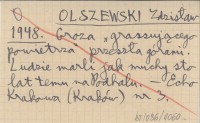 OLSZEWSKI Zdzisław
1948. Groza „grassującego
powietrza" przeszła górami.
Ludzie marli jak muchy sto
lat temu na Podhalu. Echo
Krakowa (Kraków) nr 3.